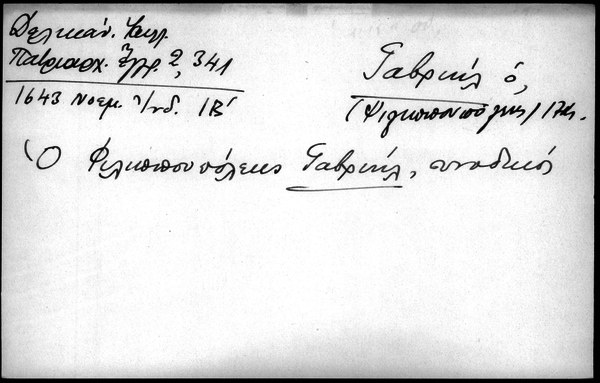 Δελικάν. Καλλ.
Πατριαρχ. Ἔγγρ. 2, 341
1643 Νοεμ. Ἰνδ. ΙΒ΄
Γαβριήλ ὁ,
(Φιλιππουπόλεως) 17 αι.
Ὁ Φιλιππουπόλεως Γαβριήλ, συνοδικός